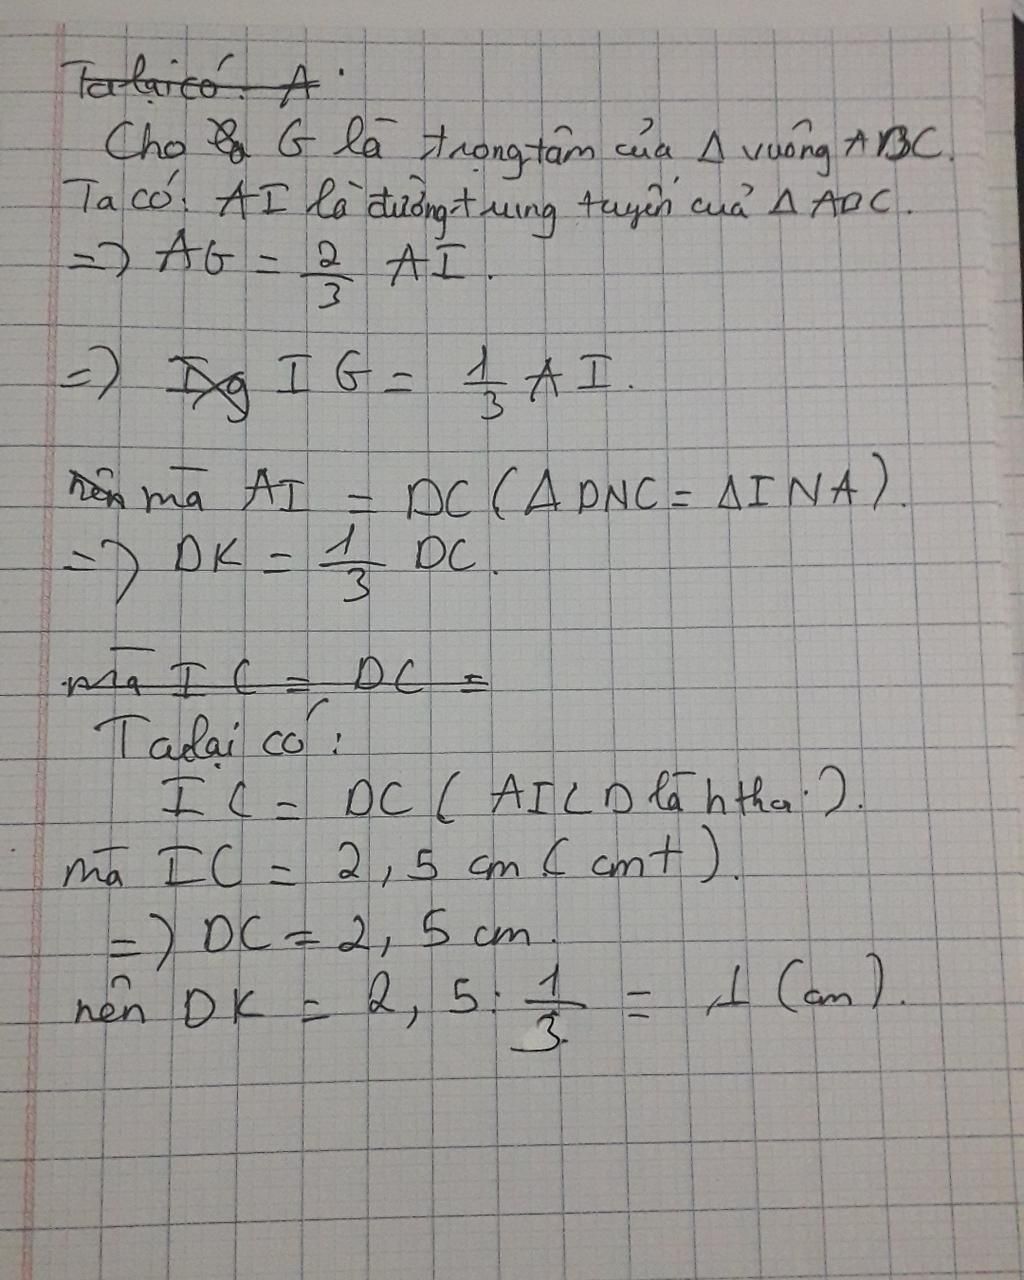 Ta lại có: A
Cho G là trọng tâm của Δ vuông ABC.
Ta có: AI là đường trung tuyến của Δ ABC.
=> AG = 2/3 AI.
=> Ig IG = 1/3 AI.
nên mà AI = DC (Δ DNC = Δ INA).
=> DK = 1/3 DC.
mà IC = DC =
Ta lại có:
IC = DC (AICD là h thoi).
mà IC = 2,5 cm (cmt).
=> DC = 2,5 cm.
nên DK = 2,5 : 1/3 = 1 (cm).